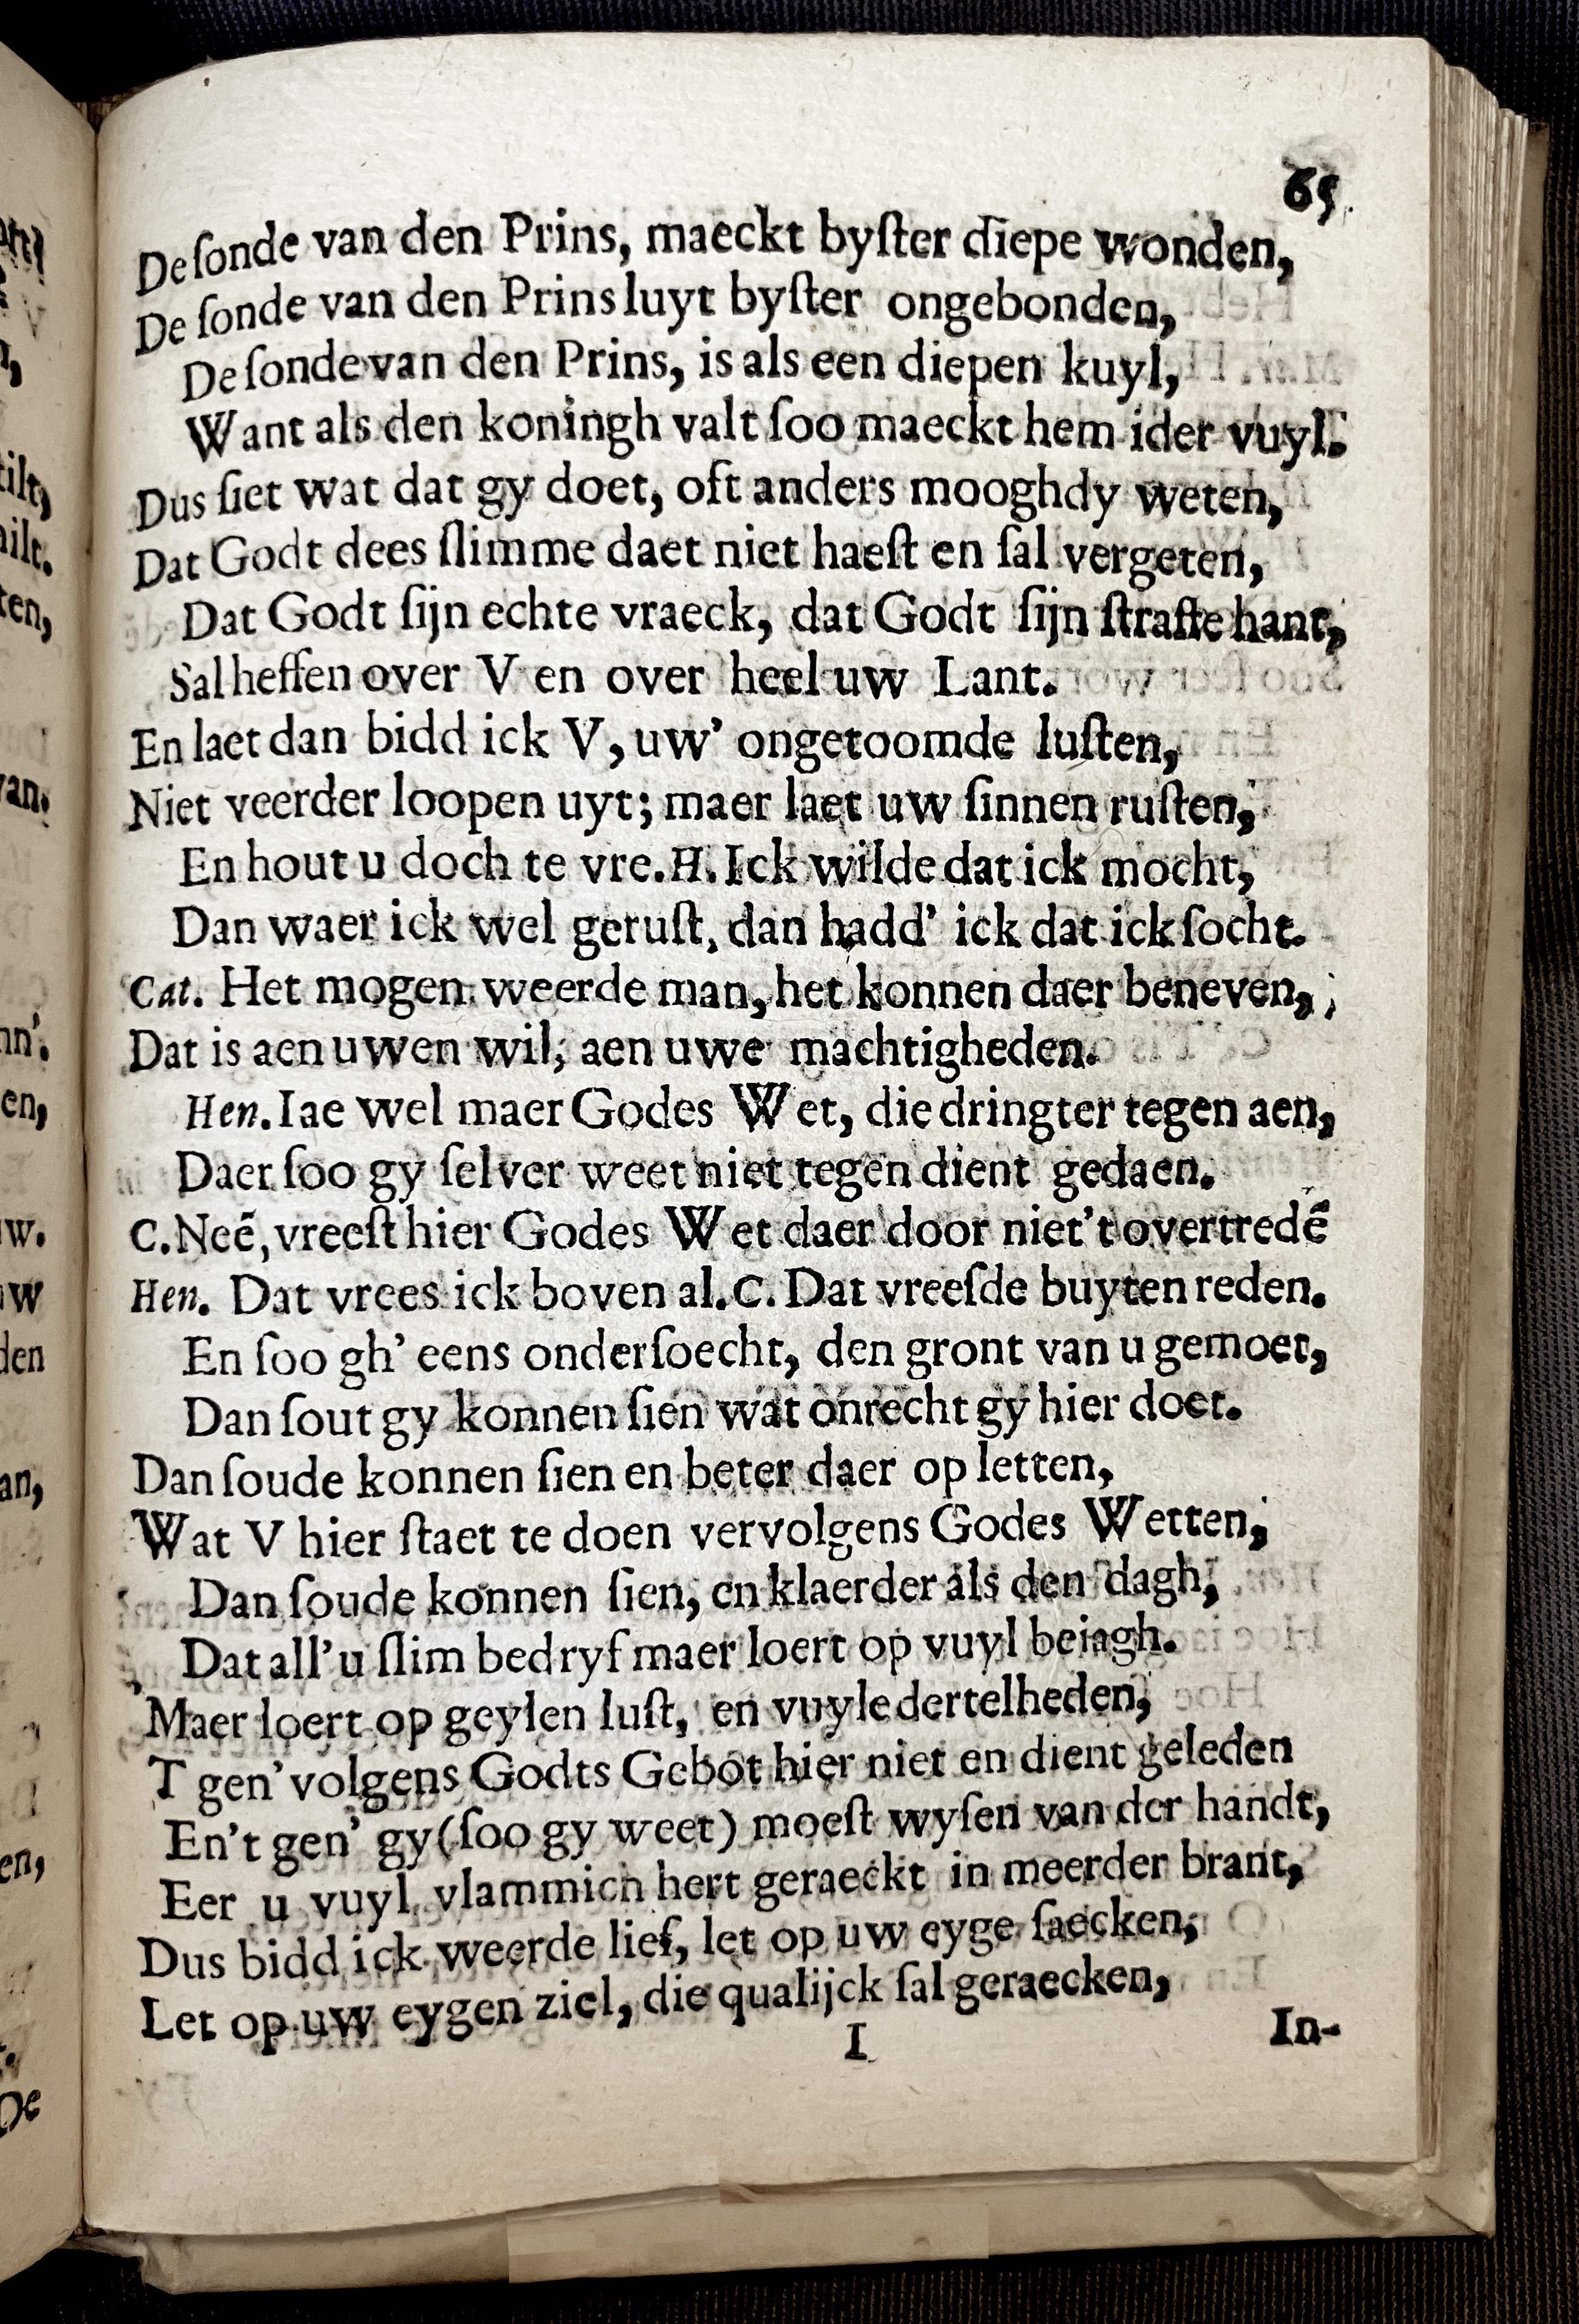 65
De ſonde van den Prins, maeckt byſter diepe wonden,
De ſonde van den Prins luyt byſter ongebonden,
De ſonde van den Prins, is als een diepen kuyl,
Want als den koningh valt ſoo maeckt hem ider vuyl.
Dus ſiet wat dat gy doet, oft anders mooghdy weten,
Dat Godt dees ſlimme daet niet haeſt en ſal vergeten,
Dat Godt ſijn echte vraeck, dat Godt ſijn ſtraffe hant,
Sal heffen over V en over heel uw Lant.
En laet dan bidd ick V, uw' ongetoomde luſten,
Niet veerder loopen uyt; maer laet uw ſinnen ruſten,
En hout u doch te vre. H. Ick wilde dat ick mocht,
Dan waer ick wel geruſt, dan hadd' ick dat ick ſocht.
Cat. Het mogen weerde man, het konnen daer beneven,
Dat is aen uwen wil, aen uwe machtigheden.
Hen. Iae wel maer Godes Wet, die dringter tegen aen,
Daer ſoo gy ſelver weet niet tegen dient gedaen.
C. Neẽ, vreeſt hier Godes Wet daer door niet 't overtredẽ
Hen. Dat vrees ick boven al. C. Dat vreeſde buyten reden.
En ſoo gh' eens onderſoecht, den gront van u gemoet,
Dan ſout gy konnen ſien wat onrecht gy hier doet.
Dan ſoude konnen ſien en beter daer op letten,
Wat V hier ſtaet te doen vervolgens Godes Wetten,
Dan ſoude konnen ſien, en klaerder als den dagh,
Dat all' u ſlim bedryf maer loert op vuyl beiagh.
Maer loert op geylen luſt, en vuyle dertelheden,
T gen' volgens Godts Gebot hier niet en dient geleden
En 't gen' gy (ſoo gy weet) moeſt wyſen van der handt,
Eer u vuyl vlammich hert geraeckt in meerder brant,
Dus bidd ick weerde lief, let op uw eyge ſaecken,
Let op uw eygen ziel, die qualijck ſal geraecken,
I In-